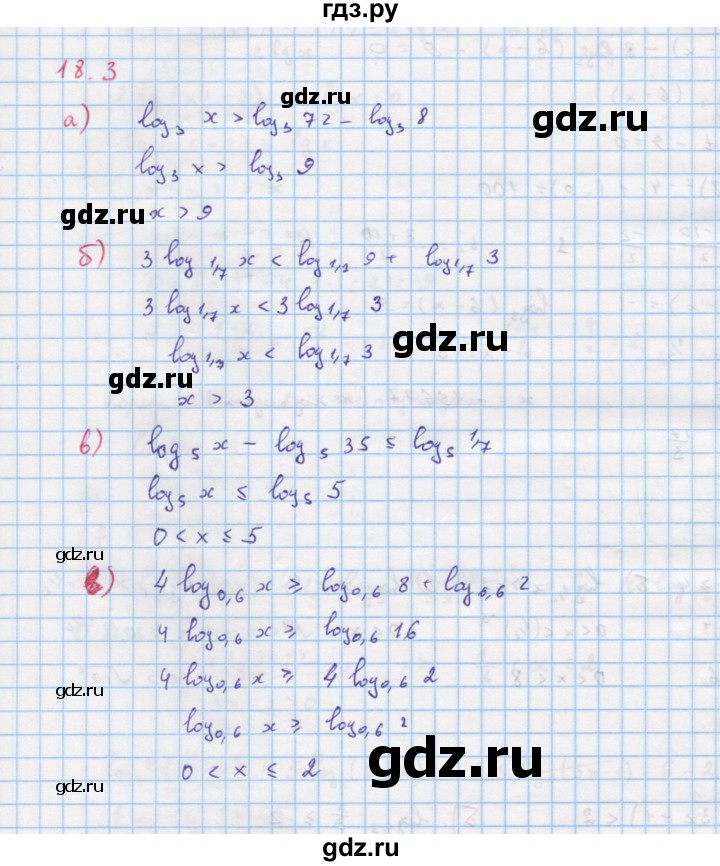 гдз.ру
18.3
а) log₃ x > log₃ 72 - log₃ 8
gdz.ru
log₃ x > log₃ 9
gdz.ru
x > 9
gdz.ru
б) 3 log 1/7 x < log 1/7 9 + log 1/7 3
3 log 1/7 x < 3 log 1/7 3
gdz.ru
log 1/7 x < log 1/7 3
gdz.ru
x > 3
в) log ₅ x - log ₅ 35 ≤ log₅ 1/7
log₅ x ≤ log₅ 5
0 < x ≤ 5
gdz.ru
gdz.ru
г) 4 log₀,₆ x ≥ log₀,₆ 8 + log₀,₆ 2
4 log₀,₆ x ≥ log₀,₆ 16
4 log₀,₆ x ≥ 4 log₀,₆ 2
gdz.ru
log₀,₆ x ≥ log₀,₆ 2
0 < x ≤ 2
gdz.ru
gdz.ru